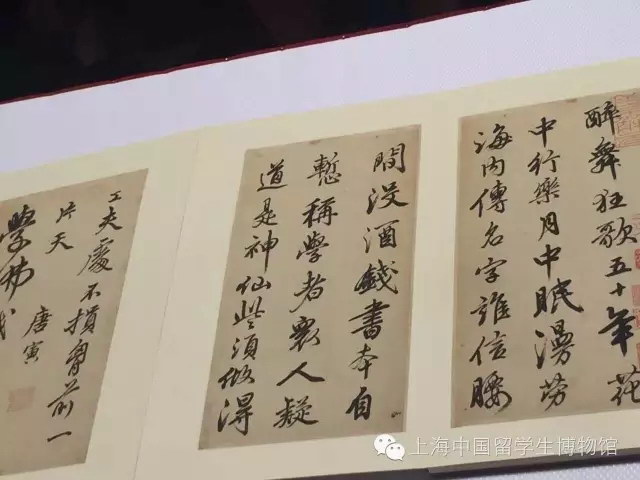 醉舞狂歌五十年花
中行樂月中眠漫勞
海內傳名字誰信腰
間沒酒錢書本自
慙稱學者衆人疑
道是神仙些須做得
工夫處不損胷前一
片天
唐寅
上海中国留学生博物馆